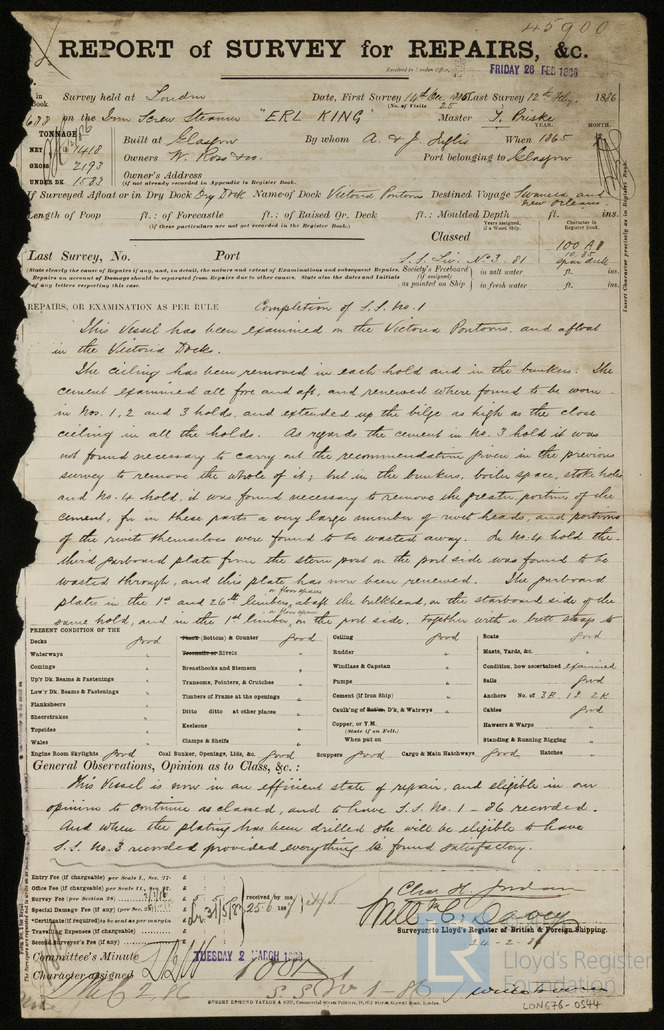 45900
REPORT of SURVEY for REPAIRS, &c.
Received in London Office, FRIDAY 26 FEB 1886
in Book. Survey held at London Date, First Survey 14th Dec. Last Survey 12th Feby. 1886
(No. of Visits 25)
on the Iron Screw Steamer "ERL KING" Master
TONNAGE YEAR. MONTH.
NET 1418 Built at Glasgow By whom A. & J. Inglis When 1865
GROSS 2193 Owners W. Ross & Co. Port belonging to Glasgow
UNDER DK. 1583 Owner's Address
(if not already recorded in Appendix to Register Book.)
If Surveyed Afloat or in Dry Dock Dry Dock Name of Dock Victoria Pontoon Destined Voyage Swansea and New Orleans
Length of Poop ft.: of Forecastle ft.: of Raised Qr. Deck ft.: Moulded Depth ft. ins.
(if these particulars are not yet recorded in the Register Book.) Years assigned, if a Wood Ship. Character in Register Book.
Insert Character precisely as in Register Book.
Classed 100 A1
10,85
Spar Deck
Last Survey, No. Port S.S. Liv. No 3. 81
(State clearly the cause of Repairs if any, and, in detail, the nature and extent of Examinations and subsequent Repairs. Society's Freeboard in salt water ft. ins.
Repairs on account of Damage should be separated from Repairs due to other causes. State also the dates and Initials (if assigned)
of any letters respecting this case. as painted on Ship in fresh water ft. ins.
REPAIRS, OR EXAMINATION AS PER RULE Completion of S.S. No. 1
This Vessel has been examined on the Victoria Pontoons, and afloat
in the Victoria Docks.
The ceiling has been removed in each hold and in the bunkers. The
cement examined all fore and aft, and renewed where found to be worn
in Nos. 1, 2 and 3 holds, and extended up the bilge as high as the close
ceiling in all the holds. As regards the cement in No. 3 hold it was
not found necessary to carry out the recommendation given in the previous
survey to remove the whole of it; but in the bunkers, boiler space, stoke holes
and No. 4 hold, it was found necessary to remove the greater portion of the
cement, for in these parts a very large number of rivet heads, and portions
of the rivets themselves were found to be wasted away. In No. 4 hold the
third garboard plate from the stern post on the port side was found to be
wasted through, and this plate has now been renewed. The garboard
plates in the 1st and 26th limbers or floor spaces abaft the bulkhead, on the starboard side of the
same hold, and in the 1st limber or floor space on the port side. Together with a butt strap to
PRESENT CONDITION OF THE
Decks good
Waterways "
Comings "
Up'r Dk. Beams & Fastenings "
Low'r Dk. Beams & Fastenings "
Planksheers "
Sheerstrakes "
Topsides "
Wales "
Plank (Bottom) & Counter good
Treenails or Rivets "
Breasthooks and Stemson "
Transoms, Pointers, & Crutches "
Timbers of Frame at the openings "
Ditto ditto at other places "
Keelsons "
Clamps & Shelfs "
Ceiling good
Rudder "
Windlass & Capstan "
Pumps "
Cement (if Iron Ship) "
Caulk'ng of Bottom, D'k, & Watrwys "
Copper, or Y.M.
(State if on Felt.)
When put on
Boats good
Masts, Yards, &c. "
Condition, how ascertained examined
Sails good
Anchors No. of 3B 1S 2K
Cables good
Hawsers & Warps "
Standing & Running Rigging "
Hatches "
Engine Room Skylights good Coal Bunker, Openings, Lids, &c. good Scuppers good Cargo & Main Hatchways good
General Observations, Opinion as to Class, &c.:
This Vessel is now in an efficient state of repair, and eligible in our
opinion to continue as classed, and to have S.S. No. 1 - 86 recorded.
And when the plating has been drilled she will be eligible to have
S.S. No. 3 recorded provided everything is found satisfactory.
Entry Fee (if chargeable) per Scale I., Sec. 27. £
Office Fee (if chargeable) per Scale II., Sec. £
Survey Fee (per Section 28) £
Special Damage Fee (if any) (per Sec. £
*Certificate (if required) to be sent as per margin £
Travelling Expenses (if chargeable) £
Second Surveyor's Fee (if any) £
received by me
Chas. H. Jordan
Will. C. Davey
Surveyors to Lloyd's Register of British & Foreign Shipping.
24-2-86
Committee's Minute TUESDAY 2 MARCH 1886
Character assigned 100A1
S.S. No 1 - 86
ROBERT EDMUND TAYLOR & SON, Commercial Steam Printers, 19, Old Street, Goswell Road, London.
LR
Lloyd's Register
Foundation
HERITAGE
LON576-0544